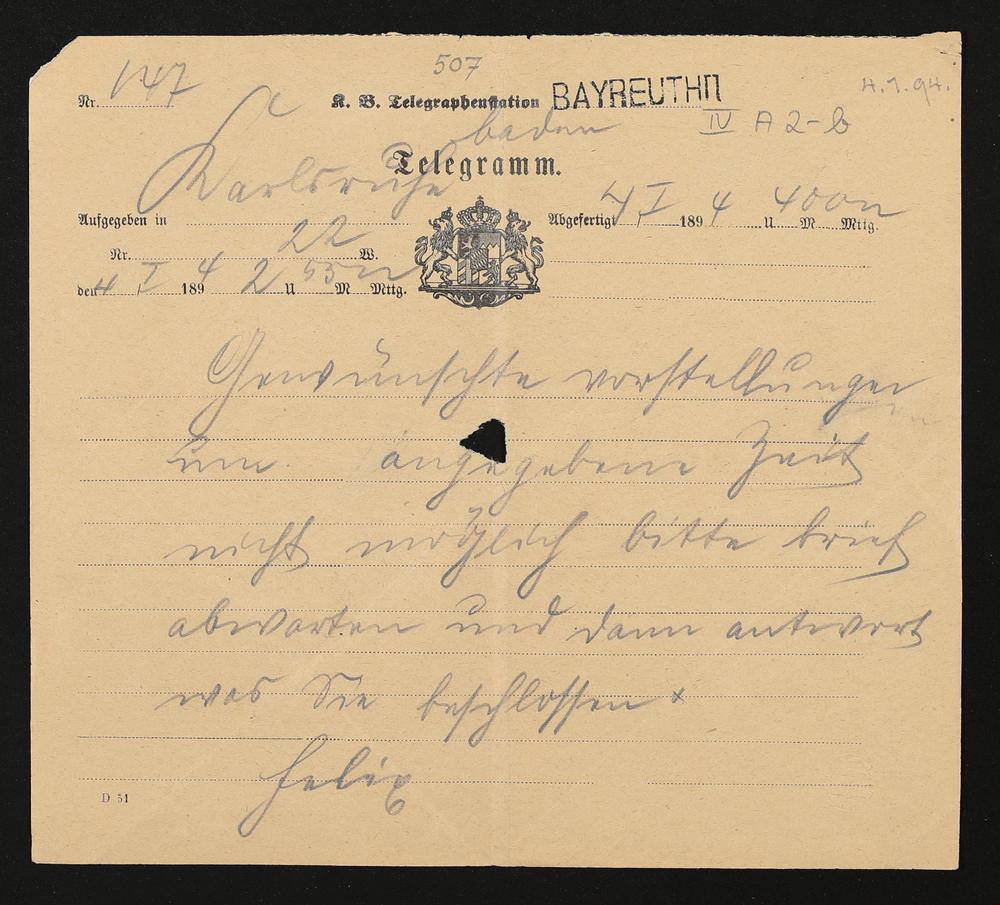 507
Nr. 147
K. B. Telegraphenstation BAYREUTH
4.1.94.
IV A 2-b
Telegramm.
Karlsruhe baden
Aufgegeben in
Abgefertigt 4/I 1894 U 400 M n Mttg.
Nr. 22 W.
den 4 I 1894 2 U 55 M n Mttg.
Gewünschte vorstellungen
um angegebene Zeit
nicht möglich bitte brief
abwarten und dann antwort
was Sie beschlossen ×
felix
D 51